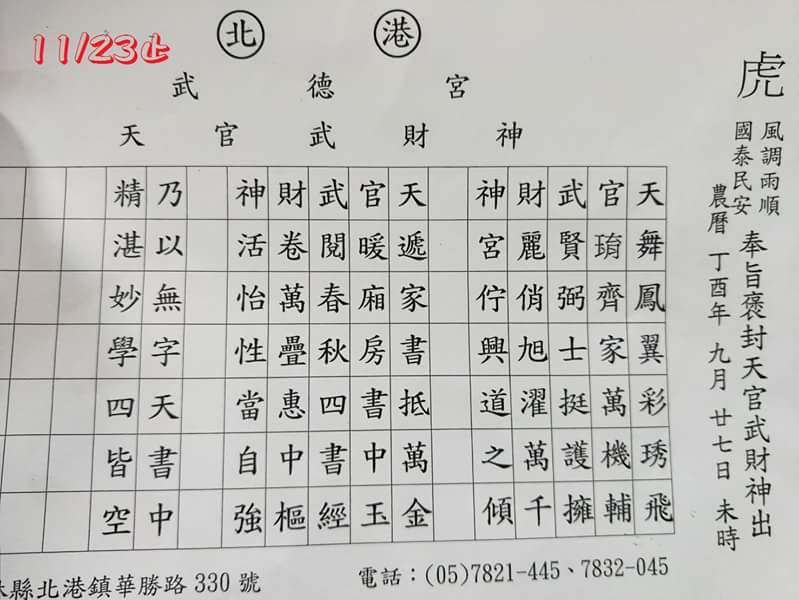 11/23止
北港
武德宮
天官武財神
虎
風調雨順
國泰民安
奉旨褒封天官武財神出
農曆 丁酉年 九月 廿七日 未時
天舞鳳翼彩琇飛
官齊家萬機輔
武賢弼士挺護擁
財麗俏旭濯萬千
神宮佇興道之傾
天遞家書抵萬金
官暖廂房書中玉
武閱春秋四書經
財卷萬疊惠中樞
神活怡性當自強
乃以無字天書中
精湛妙學四皆空
縣北港鎮華勝路 330 號
電話：(05)7821-445、7832-045